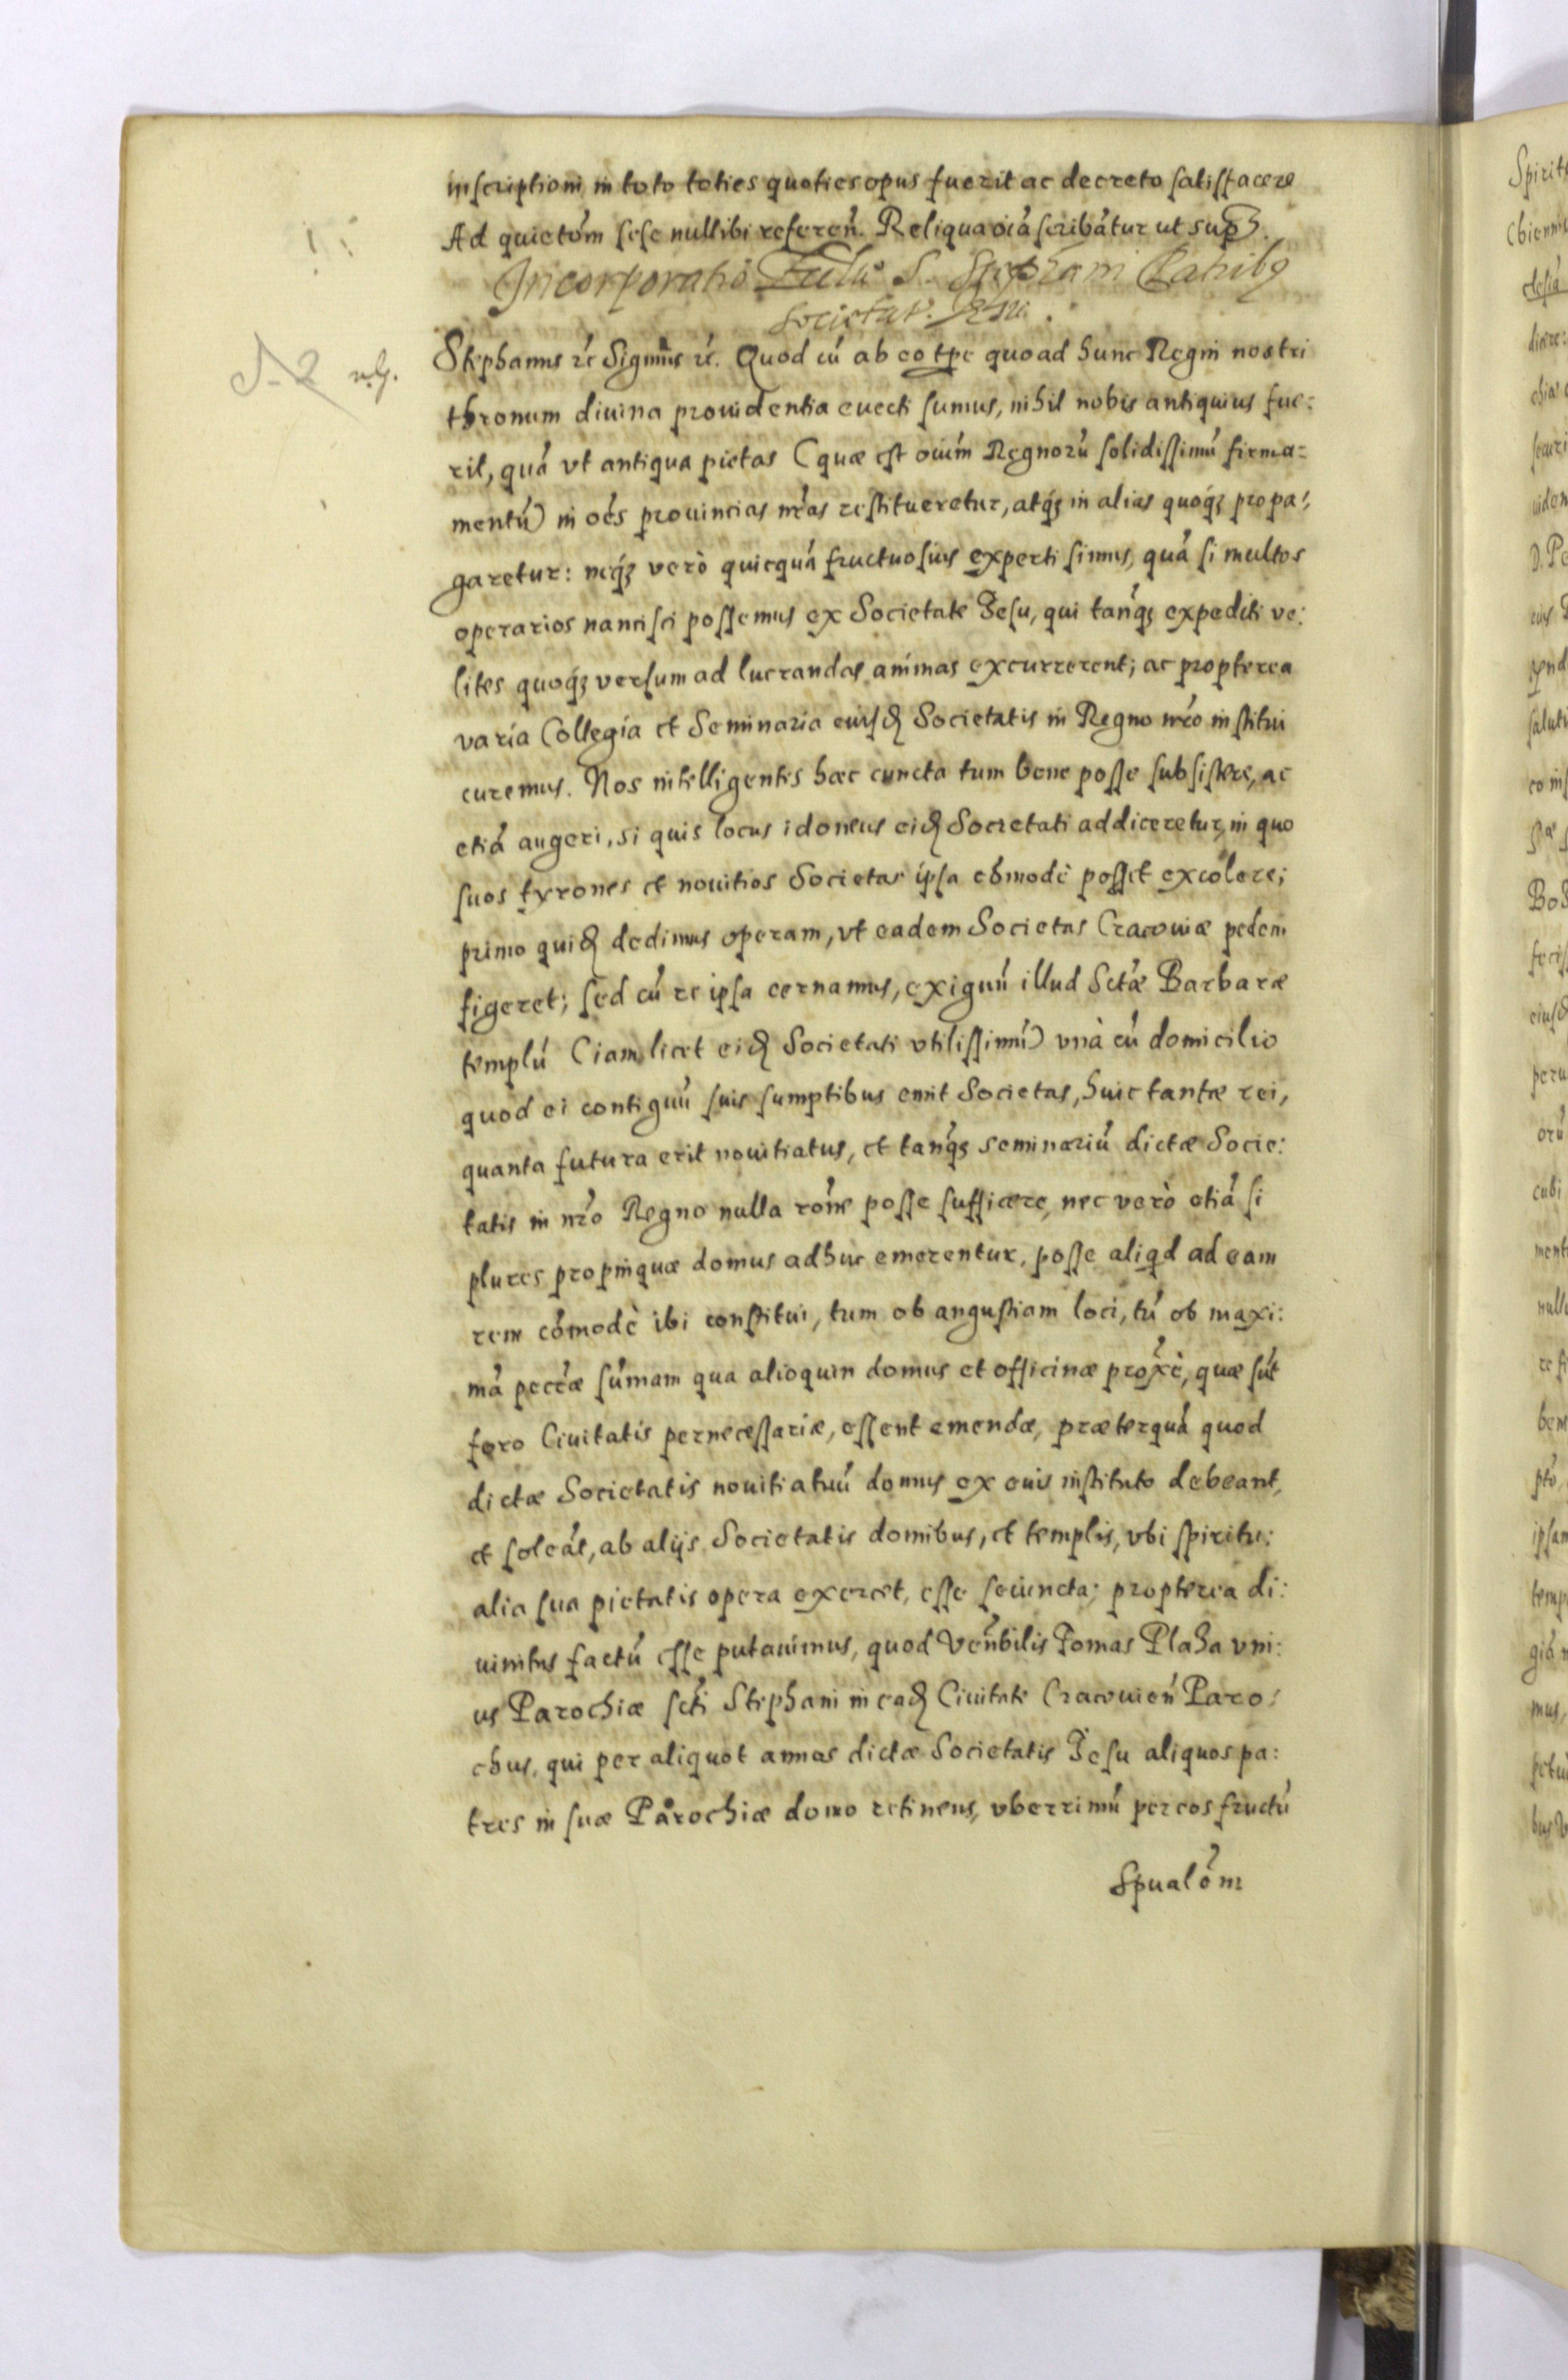 inscriptioni in toto toties quoties opus fuerit ac decreto satisfacere
Ad quietõm sese nullibi referen̄. Reliqua oīa scribātur ut sup̄
Incorporatio Eccliae S. Stephani Patribq
Societat. Jesu.
S. 2 Stephanus rc̄ Signūs rc̄. Quod cū ab eo tp̄e quo ad hunc Regni nostri
thronum diuina prouidentia euecti sumus, nihil nobis antiquius fue:
rit, quā vt antiqua pietas (quæ est oīuīm Regnorū solidissimū firma:
mentū) in oēs prouincias nr̄as restitueretur, atq́ꝫ in alias quoq́ꝫ propa:
garetur: neq́ꝫ verò quicquā fructuosius experti simus, quā si multos
operarios nancisci possemus ex Societate Jesu, qui tanq́ꝫ expediti ve:
lites quoq́ꝫ versum ad lucrandas animas excurrerent; ac propterea
varia Collegia et Seminaria eiusđ Societatis in Regno nr̄o institui
curemus. Nos intelligentes hæc cuncta tum bene posse subsistere, ac
etiā augeri, si quis locus idoneus eiđ Societati addiceretur, in quo
suos tyrones et nouitios Societas ipsa cōmodè posset excolere;
primo quiđ dedimus operam, vt eadem Societas Cracouiæ pedem
figeret; sed cū re ipsa cernamus, exiguū illud Sctæ Barbaræ
templū (iam licet eiđ Societati vtilissimū) vnà cū domicilio
quod ei contiguū suis sumptibus emit Societas, huic tantæ rei,
quanta futura erit nouitiatus, et tanq́ꝫ seminariū dictæ Socie:
tatis in nr̄o Regno nulla rōne posse sufficere, nec verò etiā si
plures propinquæ domus adhuc emerentur, posse aliqd ad eam
rem cōmodè ibi constitui, tum ob angustiam loci, tū ob maxi:
mā pec̄cæ sūmam qua alioquin domus et officinæ prox̄è, quæ sūt
foro Ciuitatis pernecessariæ, essent emendæ, præterquā quod
dictæ Societatis nouitiatuū domus ex eius instituto debeant,
et soleāt, ab alijs Societatis domibus, et templis, vbi spiritu:
alia sua pietatis opera exercet, esse seiuncta; propterea di:
uinitus factū esse putauimus, quod Ven̄bilis Tomas Plaza vni:
us Parochiæ scti Stephani in eađ Ciuitate Cracouien̄ Paro:
chus, qui per aliquot annos dictæ Societatis Jesu aliquos pa:
tres in suæ Parochiæ domo retinens, vberrimū per eos fructū
Spualōm